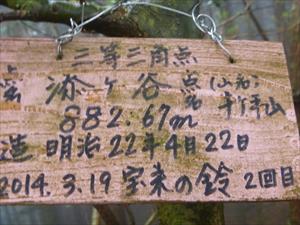 三等三角点
添ヶ谷 点名 (山名)
882.67m
造 明治22年4月22日
2014.3.19 宝来の鈴 2回目